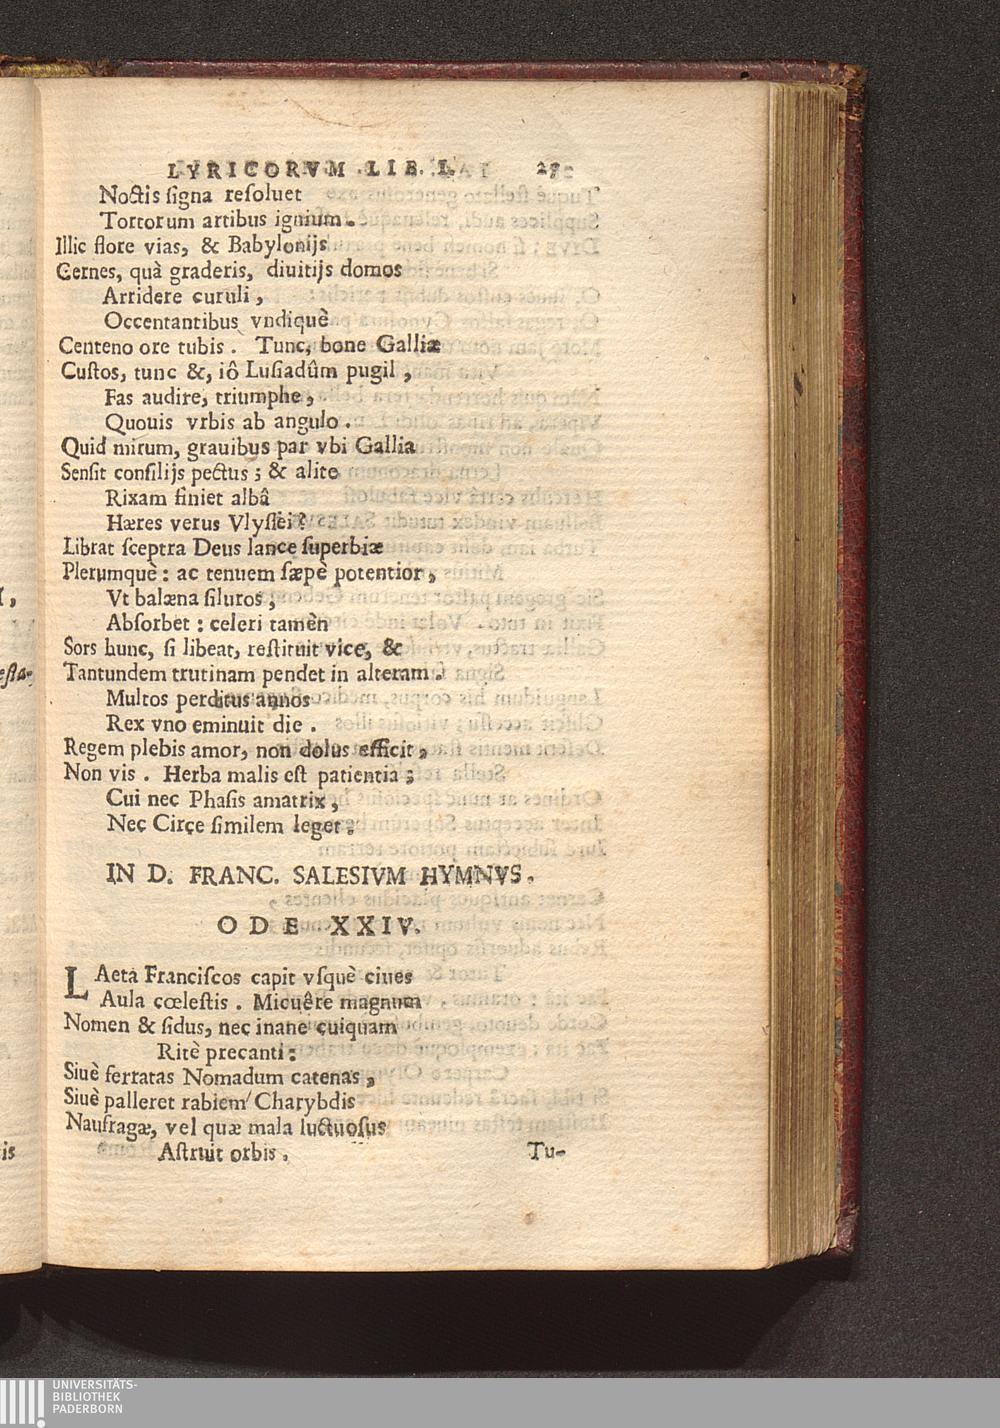 LYRICORVM LIB. I.
Noctis signa resoluet
Tortorum artibus ignium.
Illic flore vias, & Babylonijs
Cernes, quà graderis, diuitijs domos
Arridere curuli,
Occentantibus vndiquè
Centeno ore tubis. Tunc, bone Galliæ
Custos, tunc &, iô Lusiadûm pugil,
Fas audire, triumphe,
Quouis vrbis ab angulo.
Quid mirum, grauibus par vbi Gallia
Sensit consilijs pectus; & alite
Rixam finiet albâ
Hæres verus Vlyssei?
Librat sceptra Deus lance superbiæ
Plerumquè: ac tenuem sæpè potentior,
Vt balæna siluros,
Absorbet: celeri tamèn
Sors hunc, si libeat, restituit vice, &
Tantundem trutinam pendet in alteram.
Multos perditus annos
Rex vno eminuit die.
Regem plebis amor, non dolus efficit,
Non vis. Herba malis est patientia;
Cui nec Phasis amatrix,
Nec Circe similem leget.
IN D. FRANC. SALESIVM HYMNVS.
ODE XXIV.
LAeta Franciscos capit vsquè ciues
Aula cœlestis. Micuêre magnum
Nomen & sidus, nec inane cuiquam
Ritè precanti:
Siuè ferratas Nomadum catenas,
Siuè palleret rabiem Charybdis
Naufragæ, vel quæ mala luctuosus
Astruit orbis.
Tu-
UNIVERSITÄTS-
BIBLIOTHEK
PADERBORN